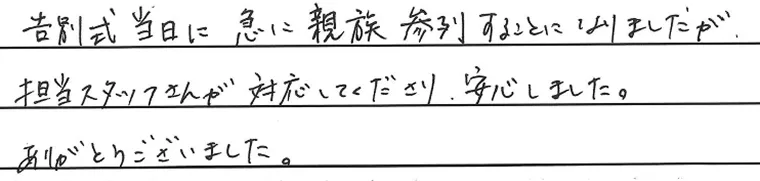 告別式当日に急に親族参列することになりましたが、
担当スタッフさんが対応してくださり、安心しました。
ありがとうございました。